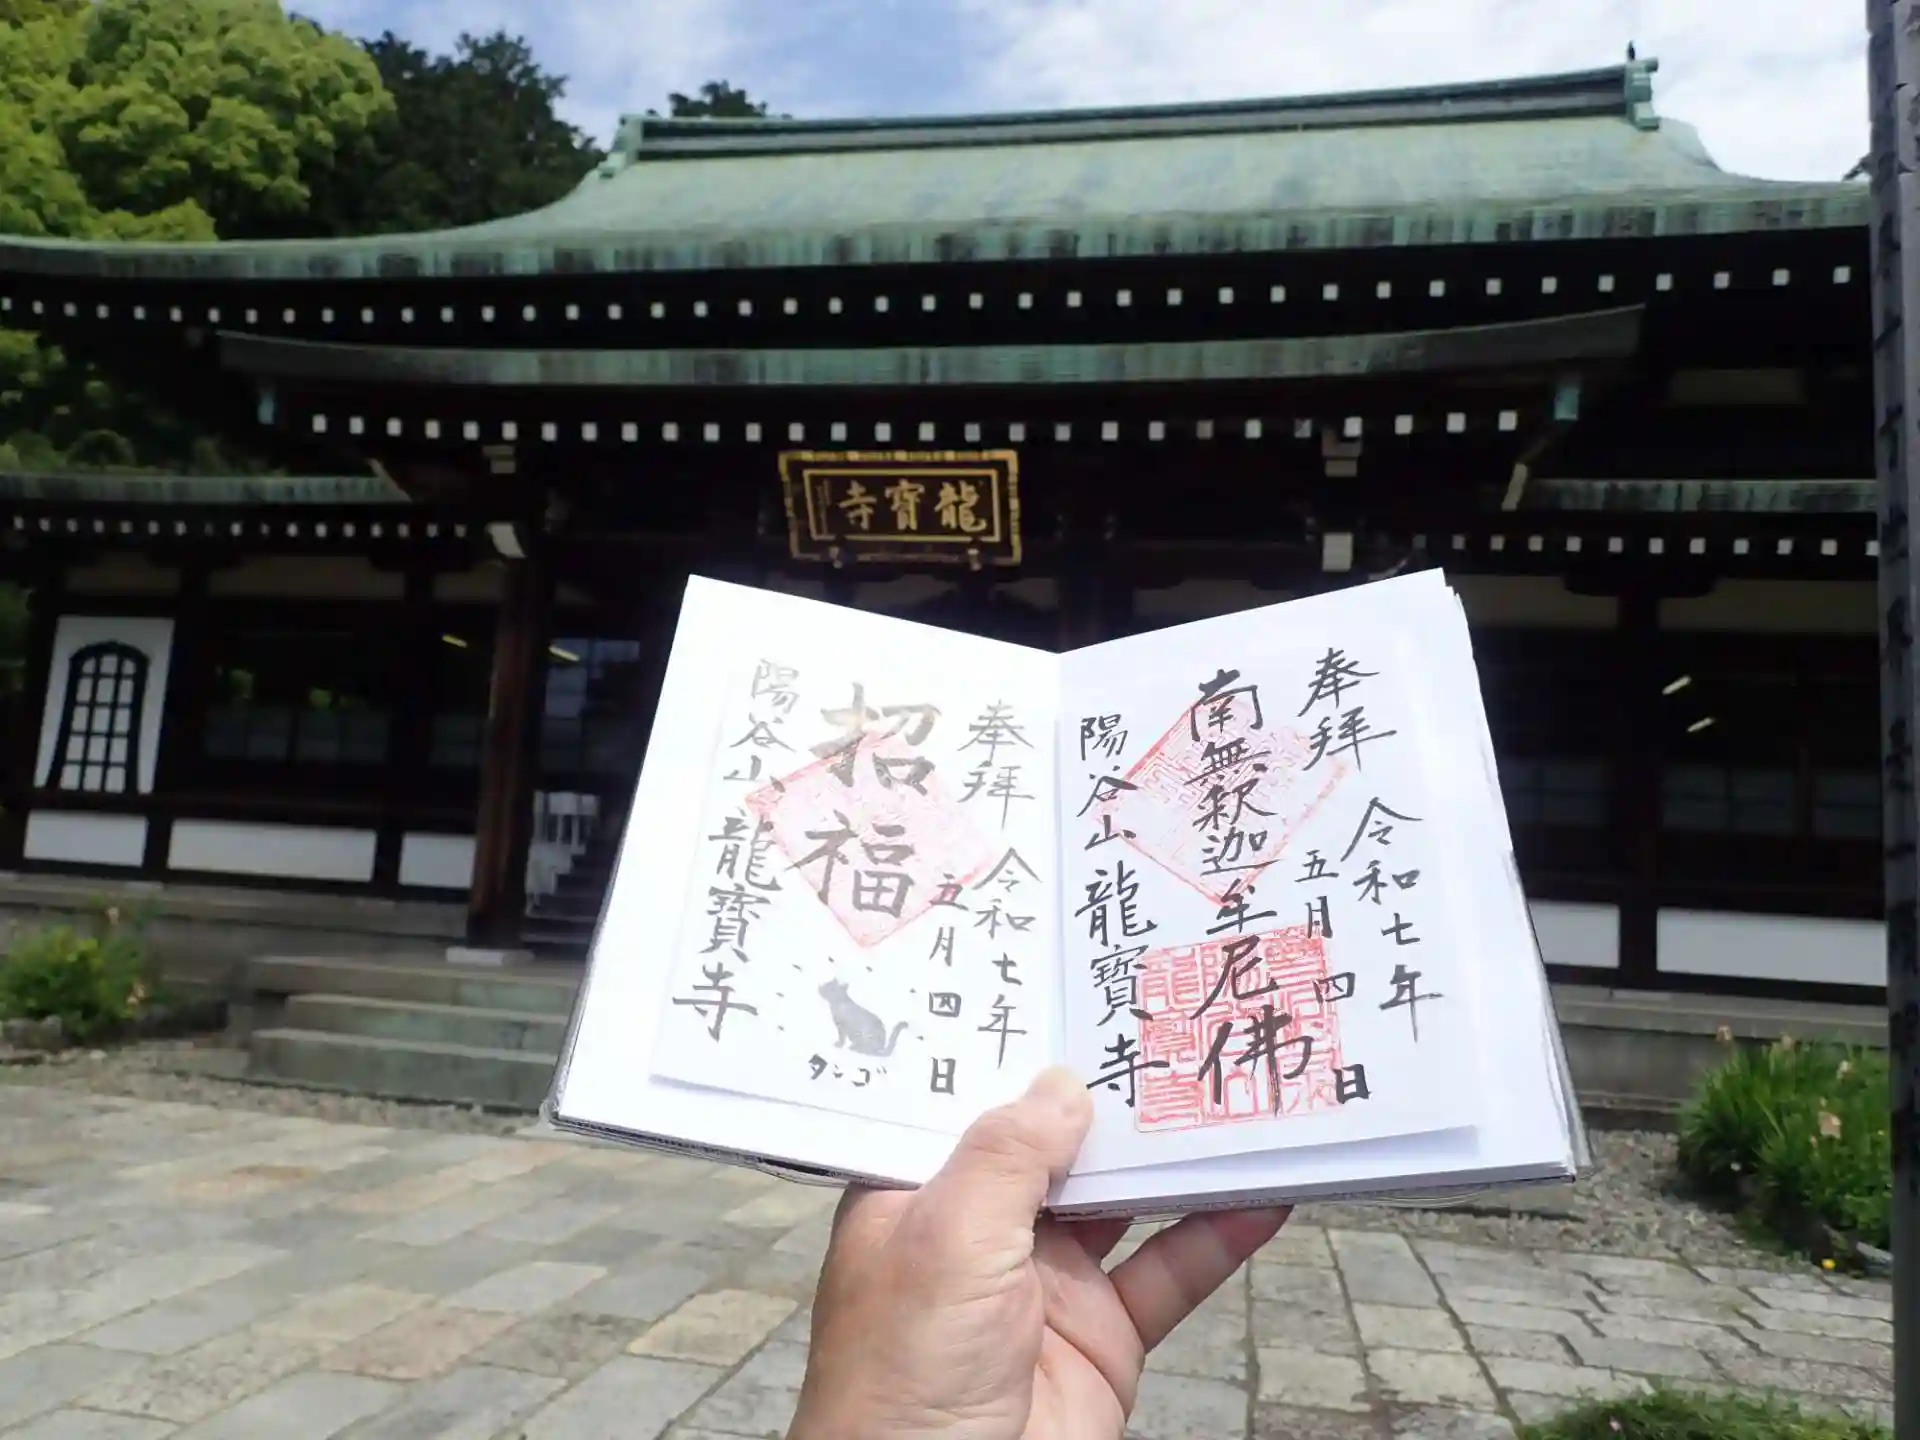 龍寶寺
奉拝
令和七年
五月四日
南無釈迦牟尼佛
陽谷山
龍寶寺
奉拝
令和七年
五月四日
招福
陽谷山
龍寶寺
タンゴ